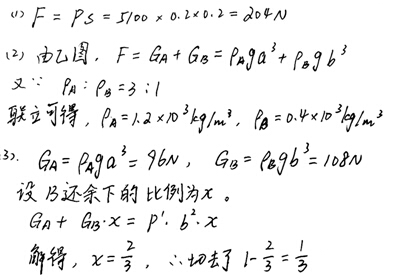 (1) F = PS = 5100 × 0.2 × 0.2 = 204N
(2) 由乙图, F = GA + GB = ρAga³ + ρBgb³
又∵ ρA : ρB = 3 : 1
联立可得, ρA = 1.2×10³kg/m³, ρB = 0.4×10³kg/m³
3). GA = ρAga³ = 96N, GB = ρBgb³ = 108N
设B还余下的比例为x。
GA + GB·x = P'·b²·x
解得, x = 2/3, ∴切去了 1 - 2/3 = 1/3